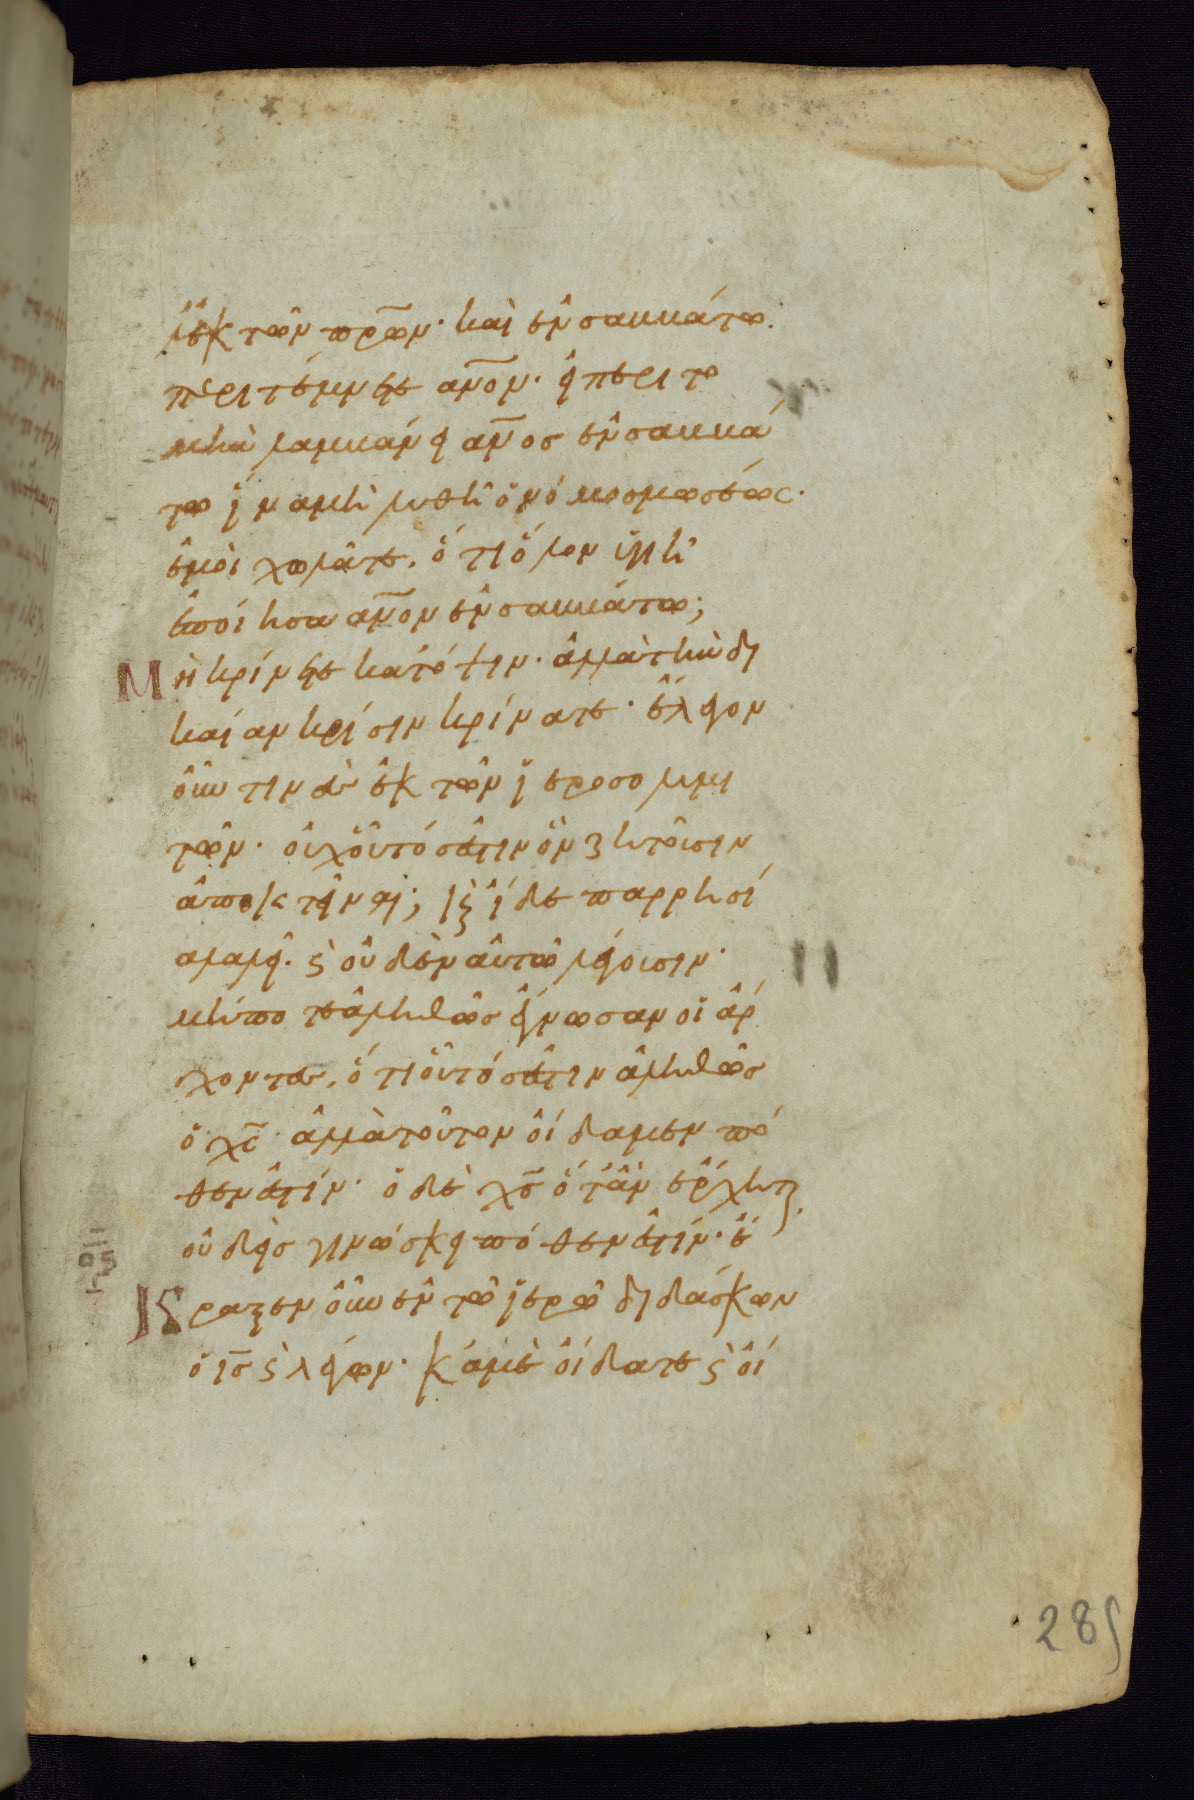 ἐκ τῶν πρ̅ων· καὶ ἐν σαββάτω·
περιτέμνετε αν̅ον· εἰ περιτο
μὴν λαμβάνει αν̅ος ἐν σαββά
τω ἵνα μὴ λυθῆ ὁ νόμος μωσέως·
ἐμοὶ χολᾶτε, ὅτι ὅλον ὑγιῆ
ἐποίησα αν̅ον ἐν σαββάτω;
Μὴ κρίνετε κατόψιν· ἀλλὰ τὴν δι
καίαν κρίσιν κρίνατε· ἔλεγον
οὖν τινὲς ἐκ τῶν ἱεροσολυμι
τῶν· οὐχ οὗτός ἐστιν ὃν ζητοῦσιν
ἀποκτεῖναι; καὶ ἴδε παρρησί
α λαλεῖ· ϗ οὐδὲν αὐτῶ λέγουσιν·
μήποτε ἀληθῶς ἔγνωσαν οἱ ἄρ
χοντες, ὅτι οὗτός ἐστιν ἀληθῶς
ὁ χς̅· ἀλλὰ τοῦτον οἴδαμεν πό
θεν ἐστίν· ὁ δὲ χς̅ ὅταν ἔρχηται,
οὐδεὶς γινώσκει πόθεν ἐστίν· ἔ
Κραξεν οὖν ἐν τῶ ἱερῶ διδάσκων
ὁ ις̅ ϗ λέγων· κἀμὲ οἴδατε ϗ οἴ
285